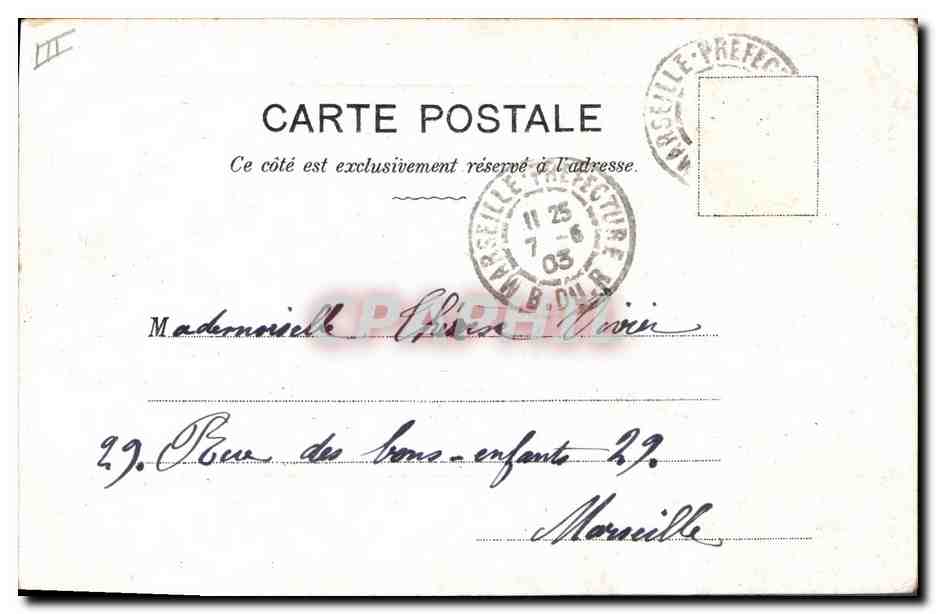 III
MARSEILLE-PREFEC
CARTE POSTALE
Ce côté est exclusivement réservé à l'adresse.
MARSEILLE-PREFECTURE
11 25
7 -6
03
B. DU R
Mademoiselle Thérèse Vivier
CPAPHIL
29. Rue des bons-enfants 29.
Marseille